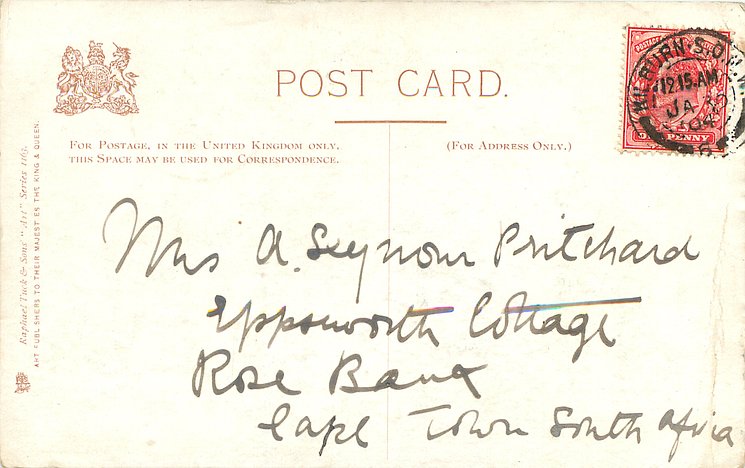 POST CARD.
FOR POSTAGE, IN THE UNITED KINGDOM ONLY,
THIS SPACE MAY BE USED FOR CORRESPONDENCE.
(FOR ADDRESS ONLY.)
KILBURN.S.O.N.W
12.15.AM
JA 15
04
PENNY
Raphael Tuck & Sons' "Art" Series 1163.
ART PUBLISHERS TO THEIR MAJESTIES THE KING & QUEEN.
Mrs A. Seymour Pritchard
Eppsworth Cottage
Rose Bank
Cape Town South Africa